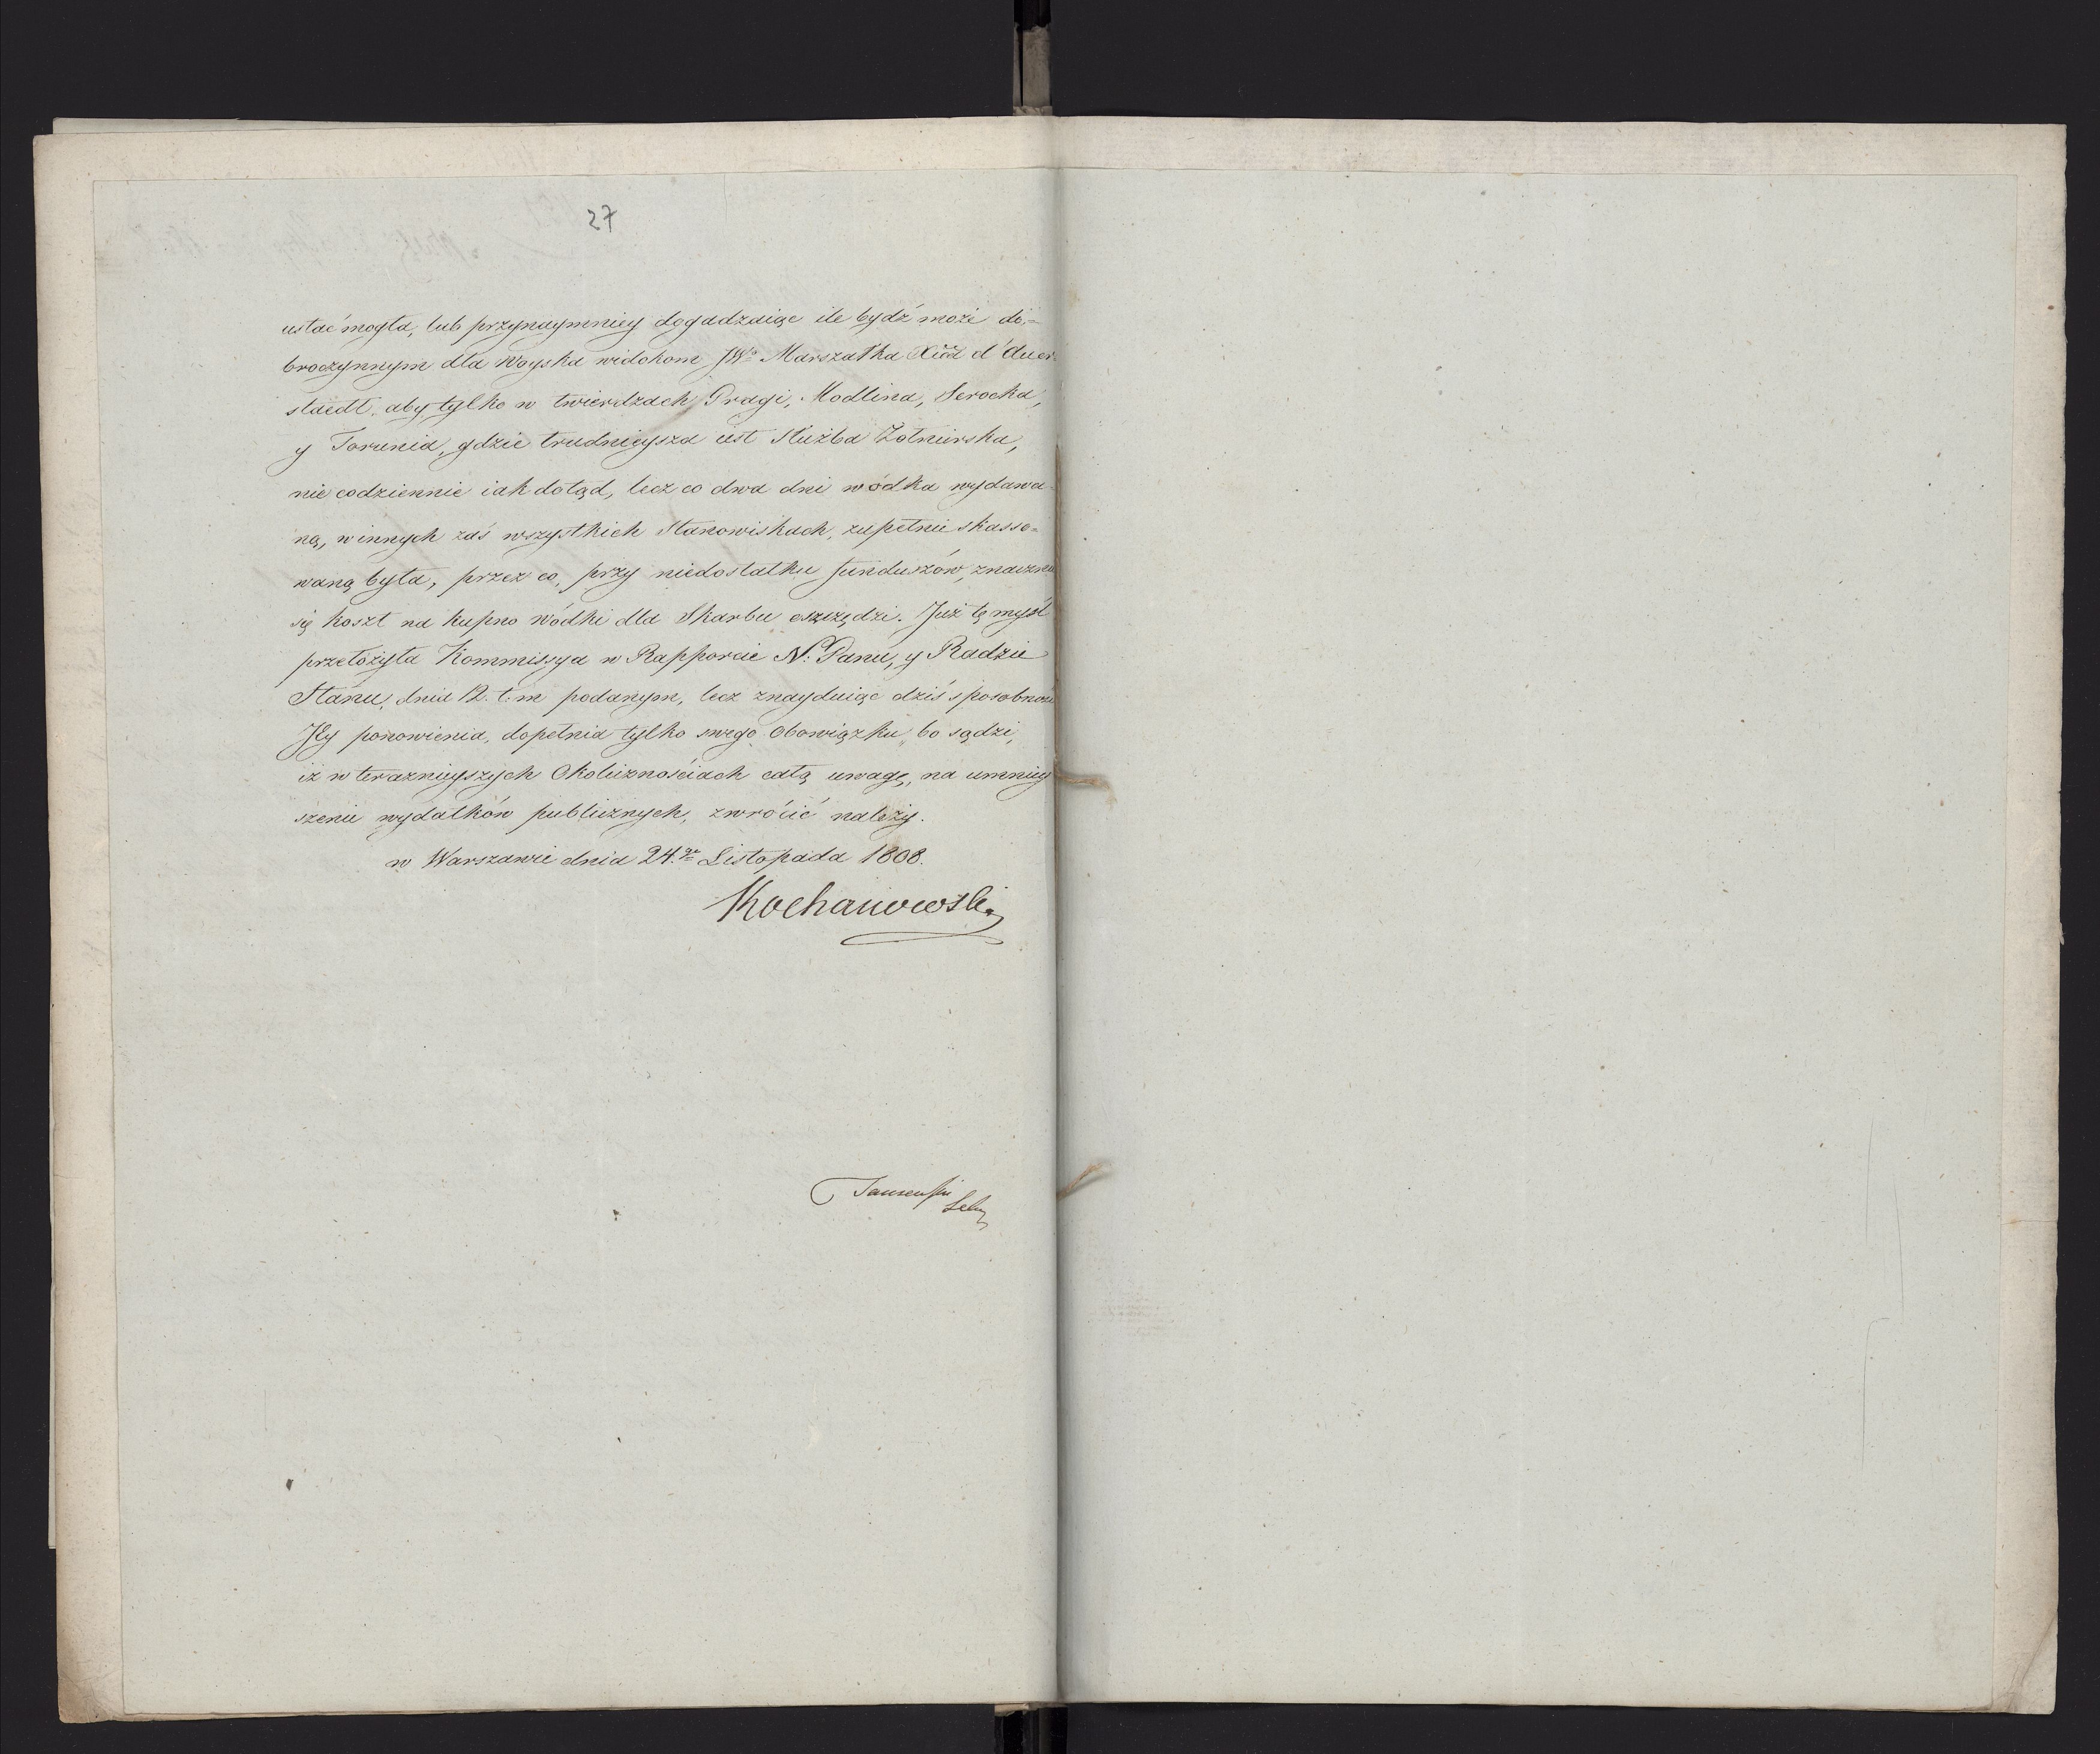 27
ustać mogła, lub przynaymniey dogadzaiąc ile bydź może do=
broczynnym dla Woyska widokom JWo Marszałka Xcia d'Auer-
staedt, aby tylko w twierdzach Pragi, Modlina, Serocka,
y Torunia, gdzie trudnieysza iest Służba Żołnierska,
nie codziennie iak dotąd, lecz co dwa dni wódka wydawa-
ną, w innych zaś wszystkich Stanowiskach, zupełnie skasso=
waną była, przez co, przy niedostatku funduszów, znacznie
się koszt na kupno wódki dla Skarbu oszczędzi. Już tę myśl
przełożyła Kommissya w Rapporcie N: Panu, y Radzie
Stanu, dnia 12. t: m podanym, lecz znayduiąc dziś sposobność
Jey ponowienia, dopełnia tylko swego obowiązku, bo sądzi,
iż w teraznieyszych Okolicznościach całą uwagę, na umniey
szenie wydatków publicznych, zwrócić należy.
w Warszawie dnia 24.go Listopada 1808.
Kochanowski